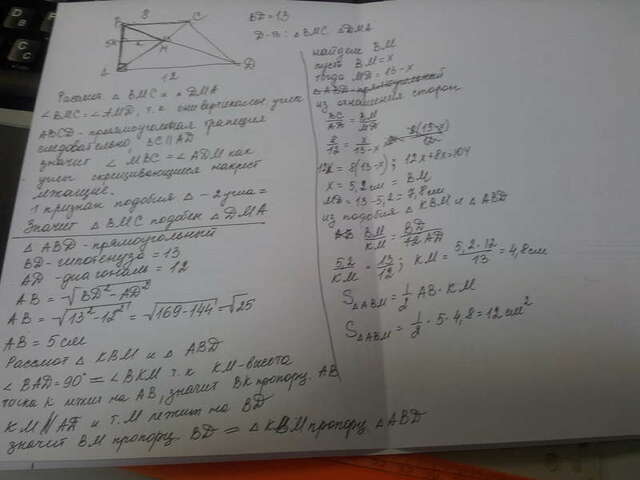 B 8 C
BD=13
D-ть: △BMC △DMA
5 M
A 12 D
Рассмот. △ BMC и △ DMA
∠BMC=∠AMD, т.к. они вертикальн. углы
ABCD - прямоугольная трапеция
следовательно, BC||AD
значит ∠ MBC = ∠ ADM как
углы скрещивающиеся накрест
лежащие.
1 признак подобия △ - 2 угла =
Значит △ BMC подобен △ DMA
△ ABD - прямоугольный
BD - гипотенуза = 13
AD - диагональ = 12
AB = √BD² - AD²
AB = √13² - 12² = √169-144 = √25
AB = 5 см
Рассмот △ KBM и △ ABD
∠ BAD = 90° = ∠ BKM т.к KM - высота
точка K лежит на AB, значит BK пропорц. AB
KM || AD и т. M лежит на BD
значит BM пропорц BD = △ KBM пропорц. △ABD
найдем BM
пусть BM = x
тогда MD = 13-x
△ABD - прямоугольный
из отношения сторон
BC/AD = BM/MD
8/12 = x/13-x
12x = 8(13-x); 12x+8x=104
x = 5,2 см = BM
MD = 13-5,2 = 7,8 см
из подобия △ KBM и △ ABD
BM/KM = BD/AD
5,2/KM = 13/12; KM = 5,2·12/13 = 4,8 см
S△ABM = 1/2 AB · KM
S△ABM = 1/2 · 5 · 4,8 = 12 см²